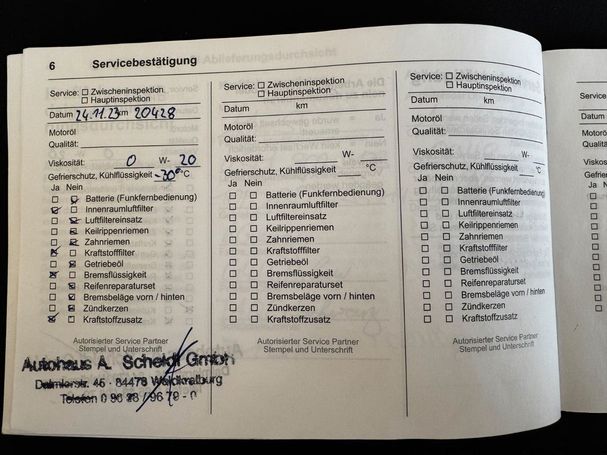 6 Servicebestätigung
Service: Zwischeninspektion
Hauptinspektion
Datum 24.11.23 km 20428
Motoröl
Qualität:
Viskosität: 0 W- 20
Gefrierschutz, Kühlflüssigkeit -30° °C
Ja Nein
Batterie (Funkfernbedienung)
Innenraumluftfilter
Luftfiltereinsatz
Keilrippenriemen
Zahnriemen
Kraftstofffilter
Getriebeöl
Bremsflüssigkeit
Reifenreparaturset
Bremsbeläge vorn / hinten
Zündkerzen
Kraftstoffzusatz
Autorisierter Service Partner
Stempel und Unterschrift
Autohaus A. Scheidl GmbH
Daimlerstr. 45 · 84478 Waldkraiburg
Telefon
Service: Zwischeninspektion
Hauptinspektion
Datum km
Motoröl
Qualität:
Viskosität: W-
Gefrierschutz, Kühlflüssigkeit °C
Ja Nein
Batterie (Funkfernbedienung)
Innenraumluftfilter
Luftfiltereinsatz
Keilrippenriemen
Zahnriemen
Kraftstofffilter
Getriebeöl
Bremsflüssigkeit
Reifenreparaturset
Bremsbeläge vorn / hinten
Zündkerzen
Kraftstoffzusatz
Autorisierter Service Partner
Stempel und Unterschrift
Service: Zwischeninspektion
Hauptinspektion
Datum km
Motoröl
Qualität:
Viskosität: W-
Gefrierschutz, Kühlflüssigkeit °C
Ja Nein
Batterie (Funkfernbedienung)
Innenraumluftfilter
Luftfiltereinsatz
Keilrippenriemen
Zahnriemen
Kraftstofffilter
Getriebeöl
Bremsflüssigkeit
Reifenreparaturset
Bremsbeläge vorn / hinten
Zündkerzen
Kraftstoffzusatz
Autorisierter Service Partner
Stempel und Unterschrift
Service:
Datum
Motoröl
Qualität:
Ja